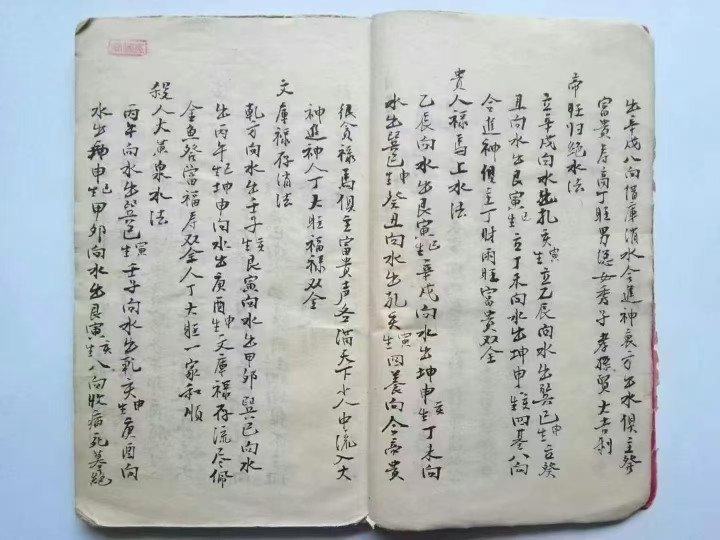 出辛戌八向借庫消水合進神衰方出水俱主發
富貴寿高丁旺男聪女秀子孝孫賢大吉利
帝旺归絕水法
立辛戌向水出乾亥寅生立乙辰向水出巽巳申生立癸
丑向水出艮寅巳生立丁未向水出坤申亥生四墓八向
合進神俱主丁財兩旺富貴双全
貴人禄馬上水法
乙辰向水出艮寅巳生辛戌向水出坤申亥生丁未向
水出巽巳申生癸丑向水出乾亥寅生四養向合帝貴
很貪禄馬俱主富貴声名滿天下小人中流入大
神進神人丁大旺福禄双全
文庫禄存消法
乾方向水出壬子亥生艮寅向水出甲卯巽巳向水
出丙午巳生坤申向水出庚酉申生文庫禄存流尽佩
金魚発富福寿双全人丁大旺一家和順
殺人大黄泉水法
丙午向水出巽巳寅生壬子向水出乾亥申生庚酉向
水出坤申巳生甲卯向水出艮寅亥生八向收病死墓絕